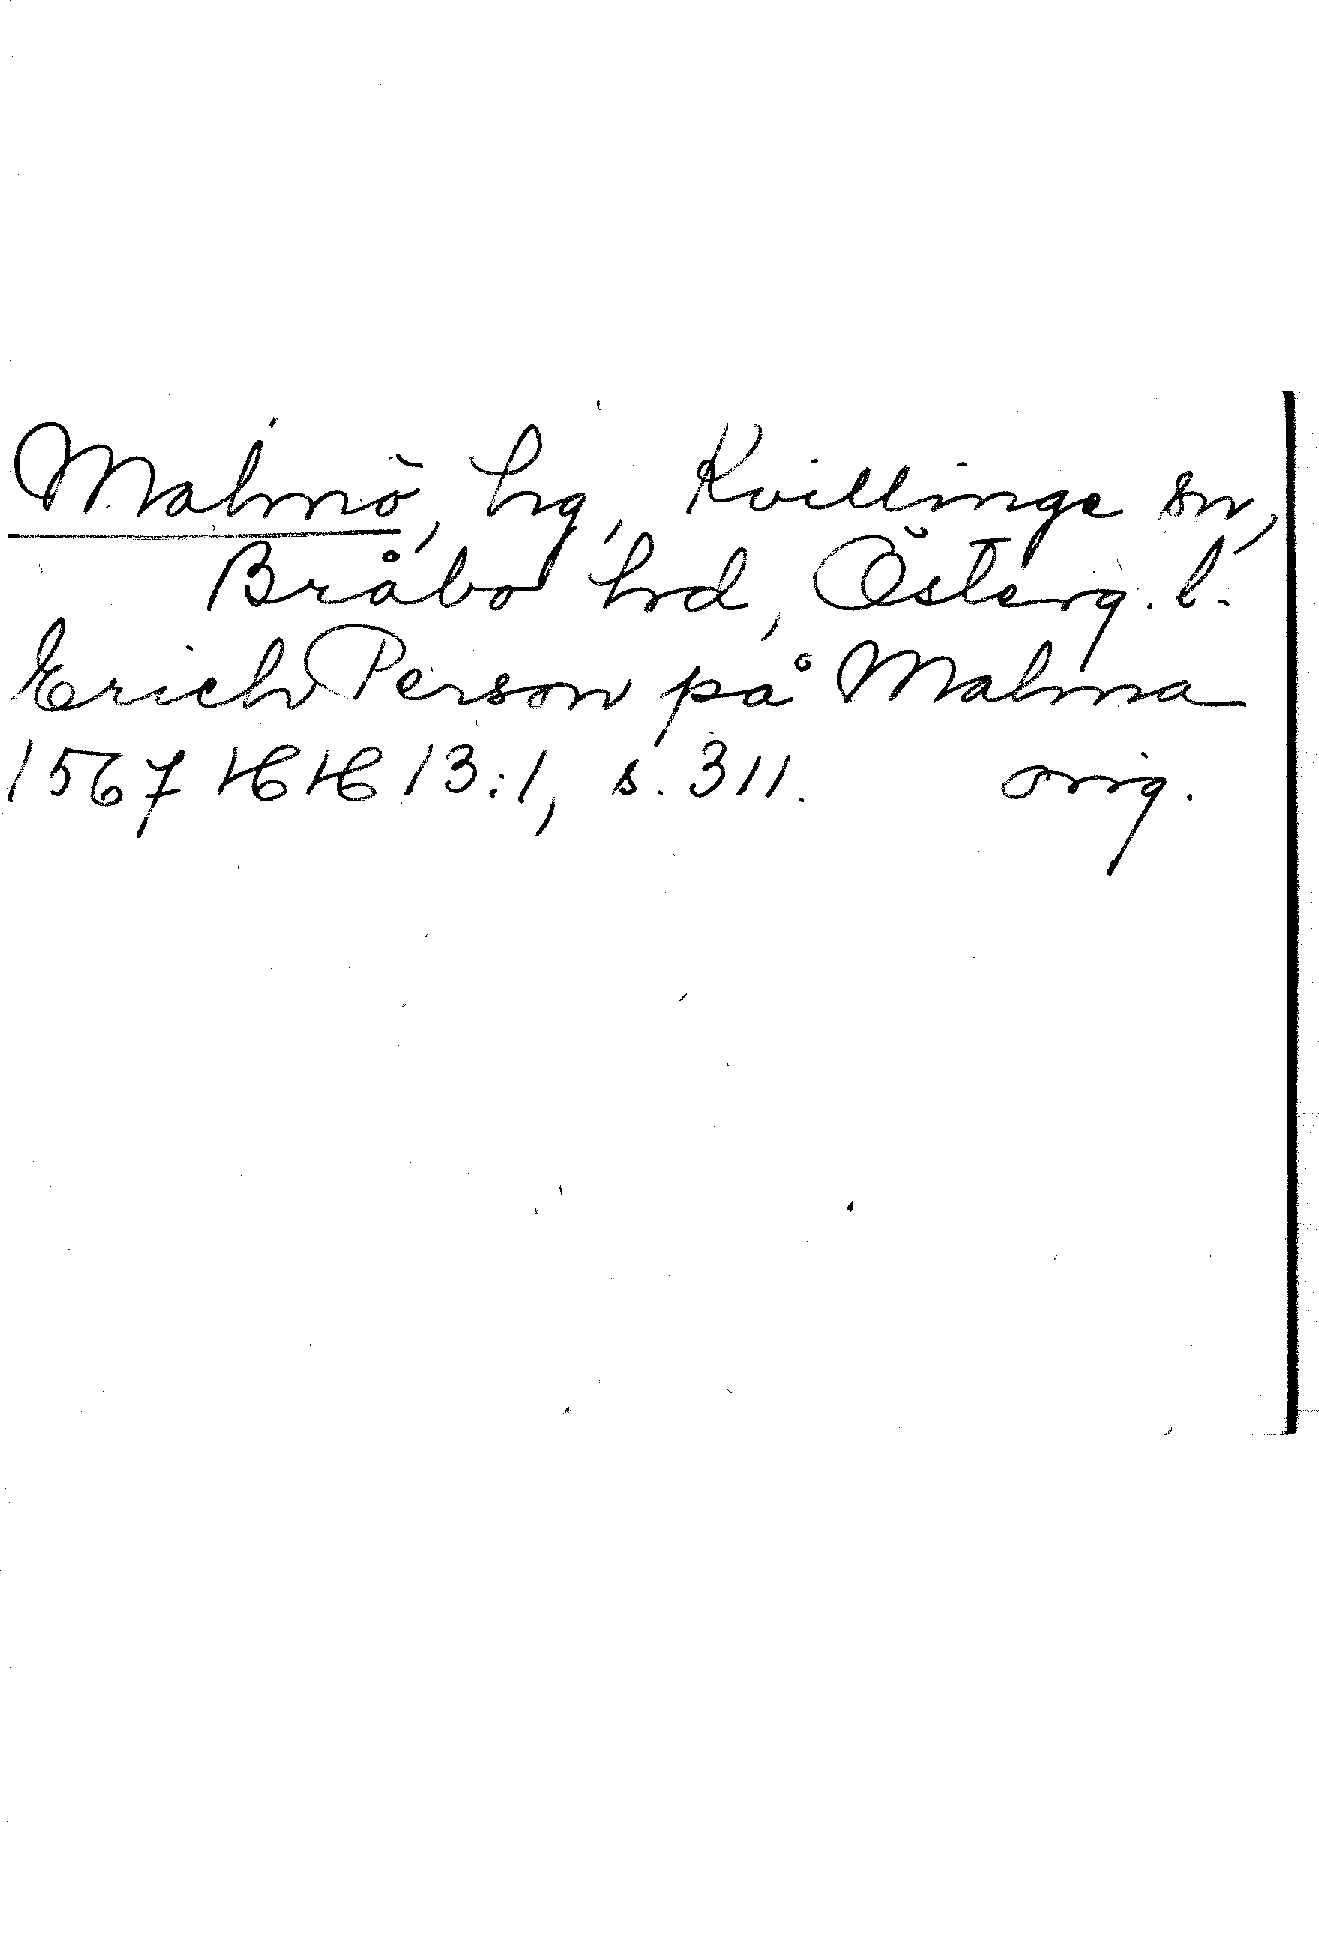 Malmö, hg, Kvillinge sn,
Bråbo hd, Österg. l.
Erich Person på Malma
1567 HH 13:1, s. 311. orig.